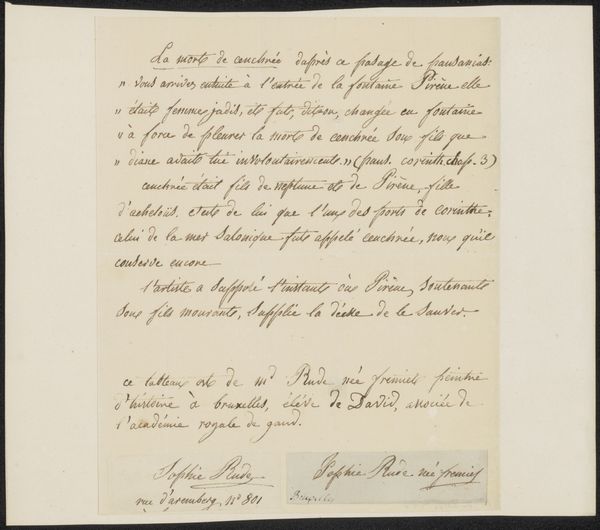 La mort de cenchrée daprès ce pasage de pausanias:
" vous arrivez ensuite à l'entrée de la fontaine Pirène elle
" était femme jadis, et fut, dit-on, changée en fontaine
" à force de pleurer la mort de cenchrée son fils que
" diane avait tué involontairement. " (paus. corinth. chap. 3)
cenchrée était fils de neptune et de Pirène, fille
d'acheloüs. et c'est de lui que l'un des ports de corinthe,
celui de la mer salonique fut appelé cenchrée, nom qu'il
conserve encore
l'artiste a supposé l'instant où Pirène, soutenant
son fils mourant, supplie la déesse de le sauver
ce tableau est de md Rude née fremiet peintre
d'histoire à bruxelles, élève de David, associée de
l'académie royale de gand.
Sophie Rude
rue d'aremberg, no 801
Sophie Rude née fremiet
Bruxelles